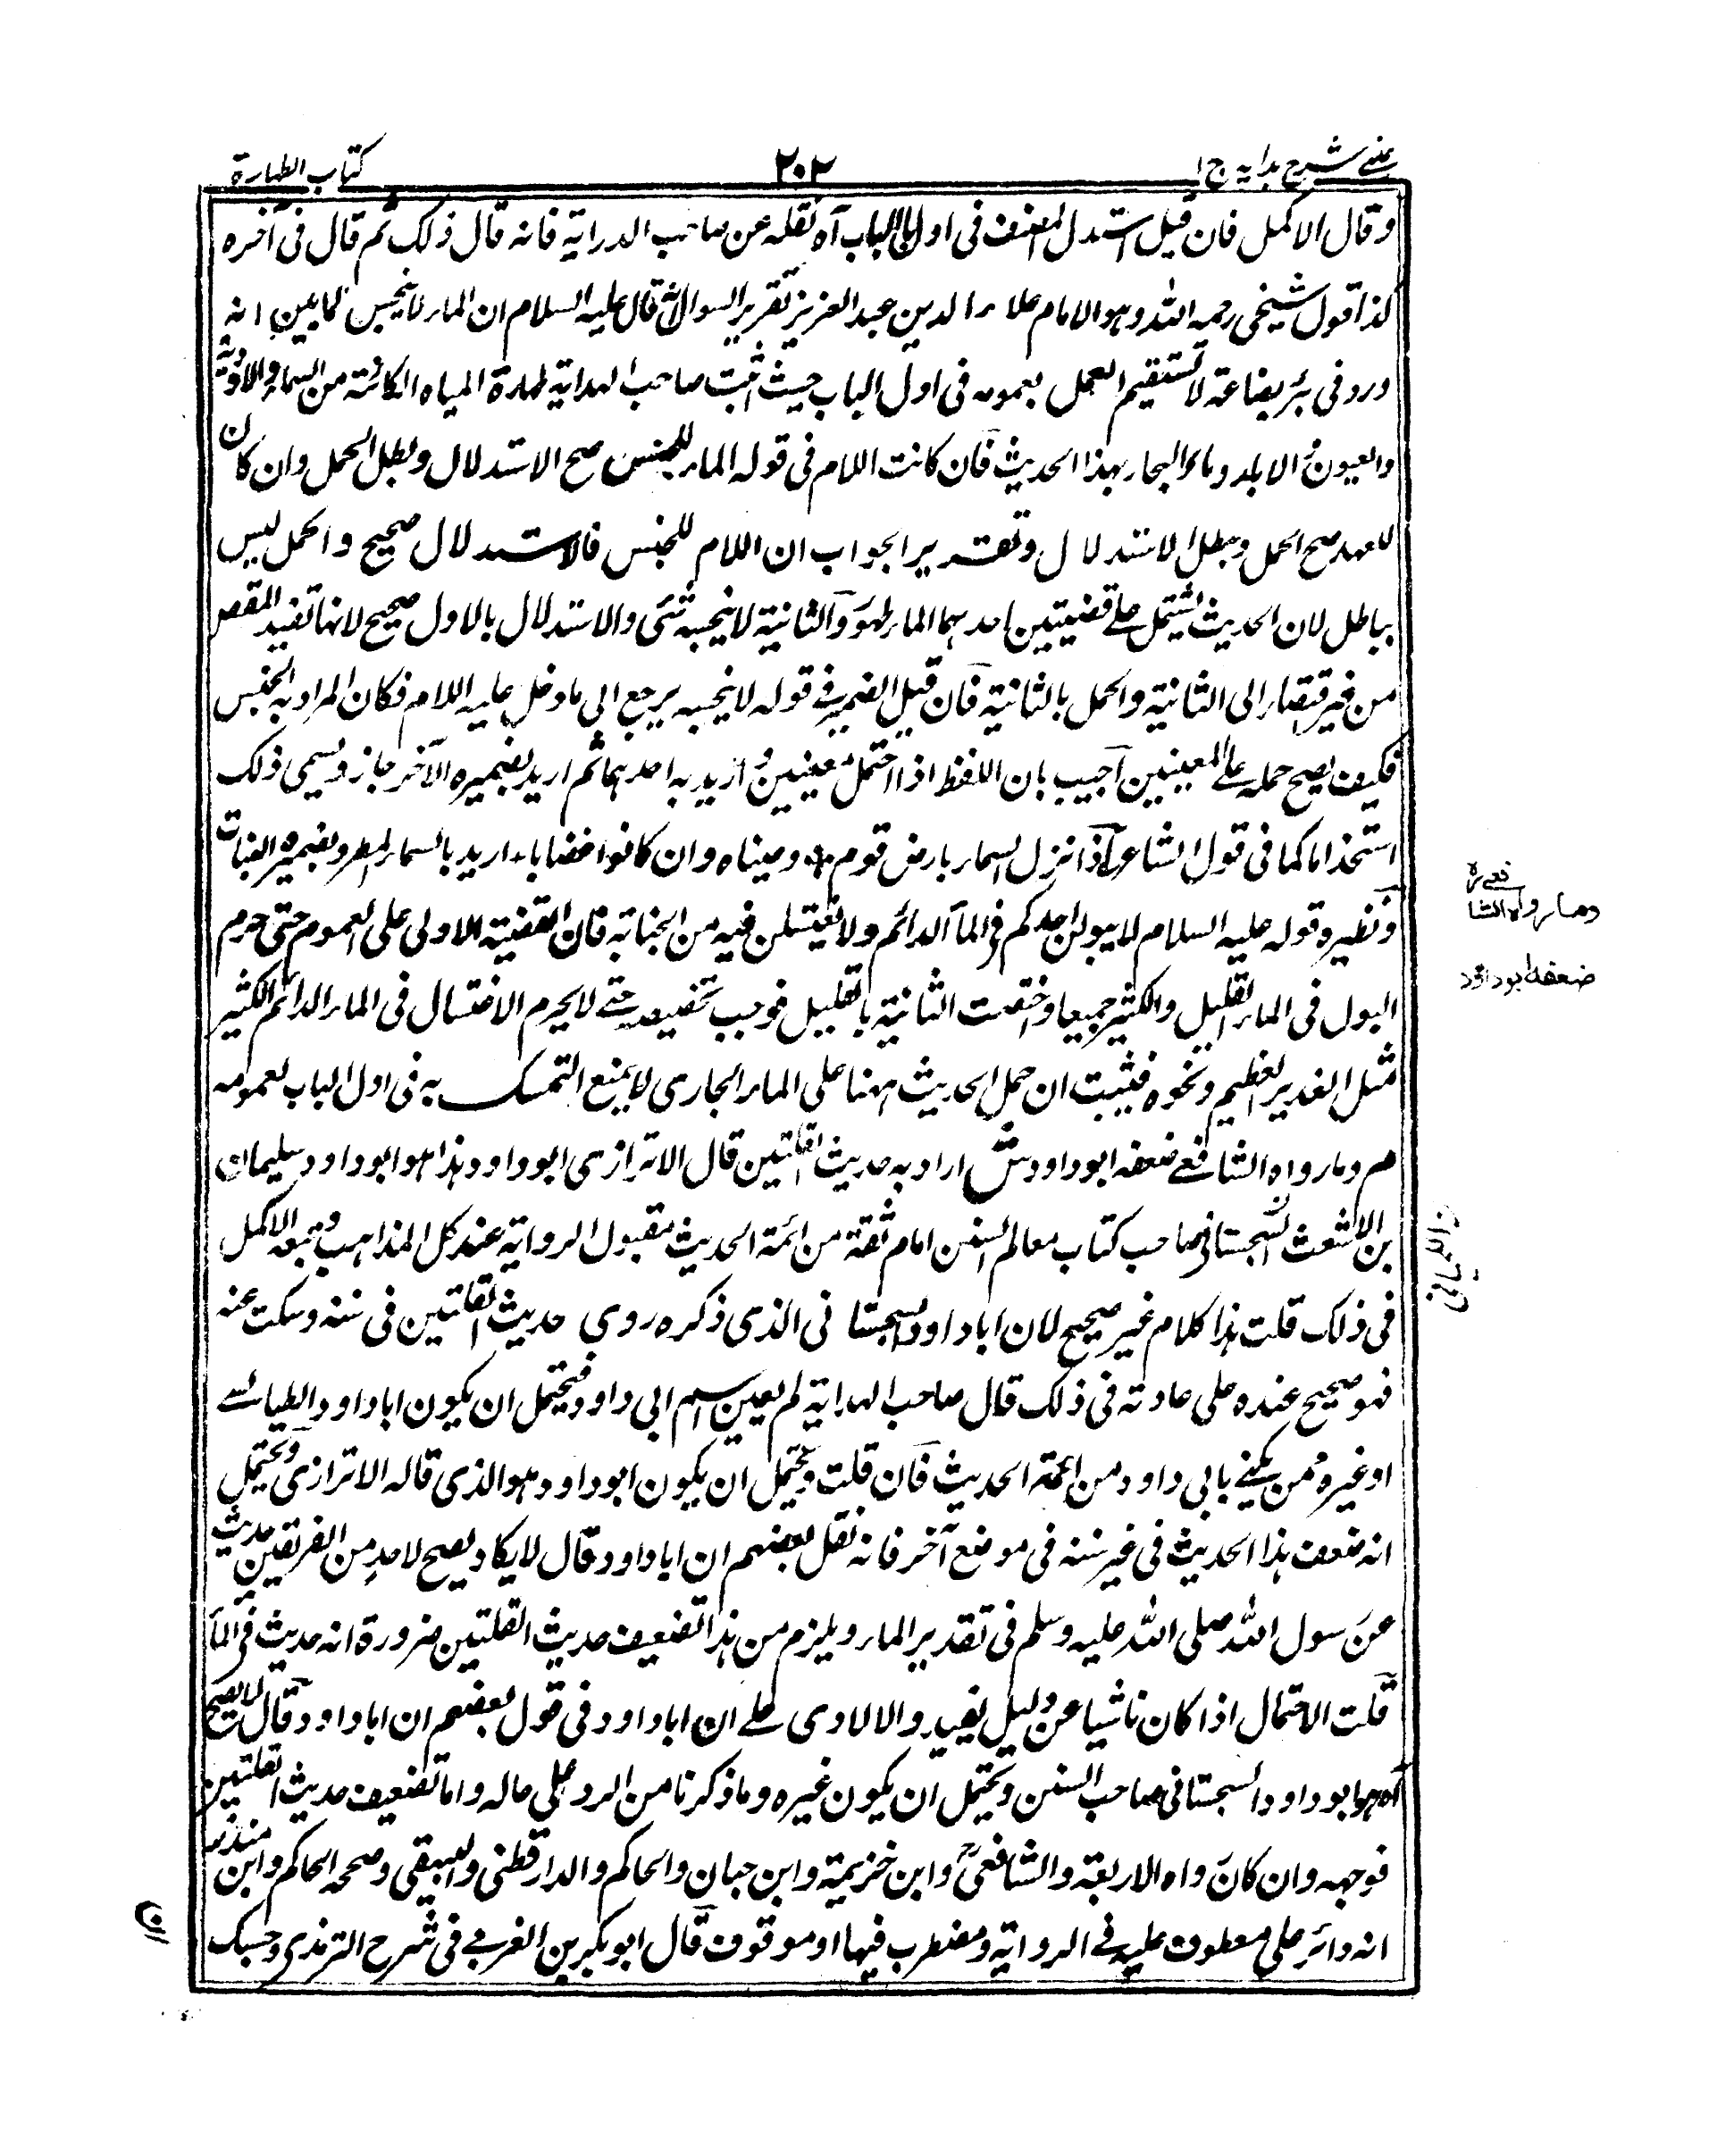 عینی شرح ہدایہ ج ۱
۲۰۲
کتاب الطہارة
وقال الاکمل فان قیل استدل المصنف فی اول الباب آہ نقلہ عن صاحب الدرایة فانہ قال ذلک ثم قال فی آخرہ
کذا قول شیخی رحمہ اللہ وہو الامام علاء الدین عبد العزیز تقریر السوال انہ قال علیہ السلام ان الماء لا ینجس کما بین انہ
ورد فی بئر بضاعة لا یستقیم العمل بعمومہ فی اول الباب حیث اثبت صاحب الہدایة طہارة المیاہ الکائنة من السماء والاودیة
والعیون والآبار وماء البحار بہذا الحدیث فان کانت اللام فی قولہ الماء للجنس صح الاستدلال وبطل الحمل وان کان
للعہد صح الحمل وبطل الاستدلال وتقریر الجواب ان اللام للجنس فالاستدلال صحیح والحمل لیس
بباطل لان الحدیث یشتمل علی قضیتین احدہما الماء طہور والثانیة لا ینجسہ شیٔ والاستدلال بالاول صحیح لانہا تفید المقصد
من غیر افتقار الی الثانیة والحمل بالثانیة فان قیل الضمیر فی قولہ لا ینجسہ یرجع الی ما دخل علیہ اللام فکان المراد بہ الجنس
فکیف یصح حملہ علی المعینین اجیب بان اللفظ اذا احتمل معنیین وارید بہ احدہما ثم ارید بضمیرہ الآخر جاز ویسمی ذلک
استخداما کما فی قول الشاعر اذا نزل السماء بارض قوم * رعیناہ وان کانوا غضابا ۔ ارید بالسماء المطر وبضمیرہ النبات
ونظیرہ قولہ علیہ السلام لا یبولن احدکم فی الماء الدائم ولا یغتسلن فیہ من الجنابة فان القضیة الاولی علی العموم حتی حرم
البول فی الماء القلیل والکثیر جمیعا واختصت الثانیة بالقلیل فوجب تخصیصہ حتے لا یحرم الاغتسال فی الماء الدائم الکثیر
مثل الغدیر العظیم ونحوہ فثبت ان حمل الحدیث ہہنا علی الماء الجاری لا یمنع التمسک بہ فی اول الباب لعمومہ
م وما رواہ الشافعے ضعفہ ابوداود ش اراد بہ حدیث القلتین قال الاترازی ابوداود ہذا ہو ابوداود سلیمان
بن الاشعث السجستانی صاحب کتاب معالم السنن امام ثقة من ائمة الحدیث مقبول الروایة عند کل المذاہب وتبعہ الاکمل
فی ذلک قلت ہذا کلام غیر صحیح لان اباداود السجستانی الذی ذکرہ روی حدیث القلتین فی سننہ وسکت عنہ
فہو صحیح عندہ علی عادتہ فی ذلک قال صاحب الہدایة لم یعین اسم ابی داود فیحتمل ان یکون اباداود الطیالسے
او غیرہ ممن یکنے بابی داود من ائمة الحدیث فان قلت ویحتمل ان یکون ابوداود ہو الذی قالہ الاترازی ویحتمل
انہ ضعف ہذا الحدیث فی غیر سننہ فی موضع آخر فانہ نقل بعضہم ان اباداود قال لا یکاد یصح لاحد من الفریقین حدیث
عن رسول اللہ صلی اللہ علیہ وسلم فی تقدیر الماء ویلزم من ہذا تضعیف حدیث القلتین ضرورة انہ حدیث فی الماء
قلت الاحتمال اذا کان ناشیا عن دلیل یفید والا لا دی علے ان اباداود فی قول بعضہم ان اباداود قال لا یصح
آہ ہو ابوداود السجستانی صاحب السنن ویحتمل ان یکون غیرہ وما ذکرنا من الرد علی حالہ واما تضعیف حدیث القلتین
فوجہہ وان کان رواہ الاربعة والشافعیؒ وابن خزیمة وابن حبان والحاکم والدارقطنی والبیہقی وصححہ الحاکم وابن مندہ
انہ دائر علی مطعون علیہ فے الروایة ومضطرب فیہا او موقوف قال ابوبکر بن العربے فی شرح الترمذی وحسبک
وما رواہ الشا
فعےرہ
ضعفہ ابوداؤد